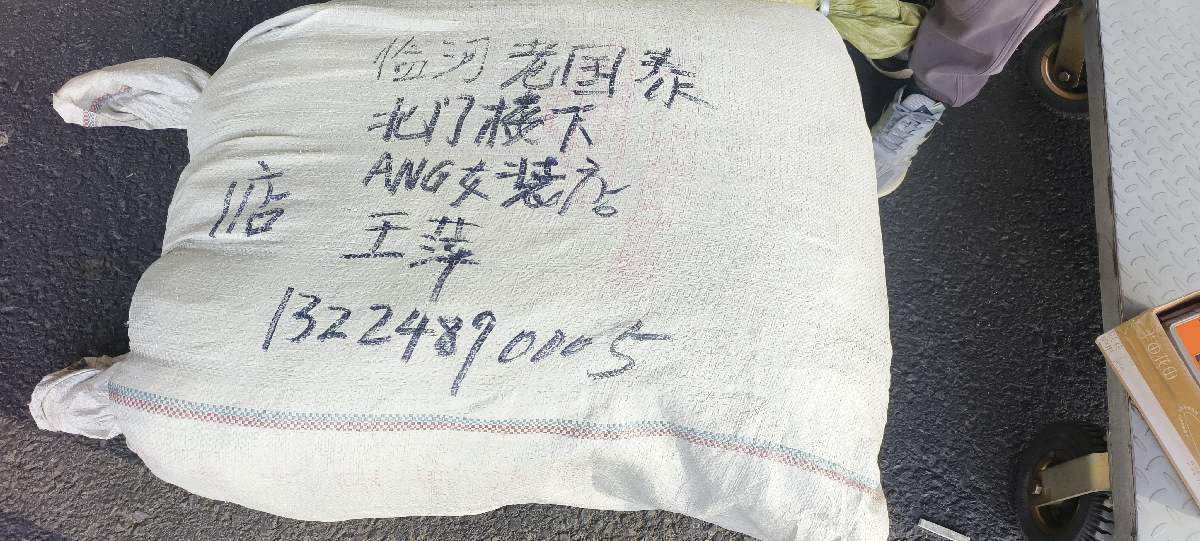 临河老国泰
北门楼下
ANG女装店
王萍
13224890005
11店